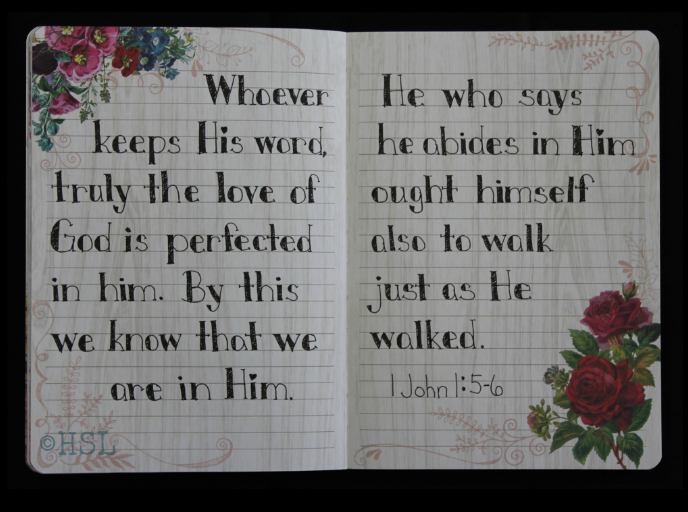 Whoever
keeps His word,
truly the love of
God is perfected
in him. By this
we know that we
are in Him.
©HSL
He who says
he abides in Him
ought himself
also to walk
just as He
walked.
1 John 1:5-6